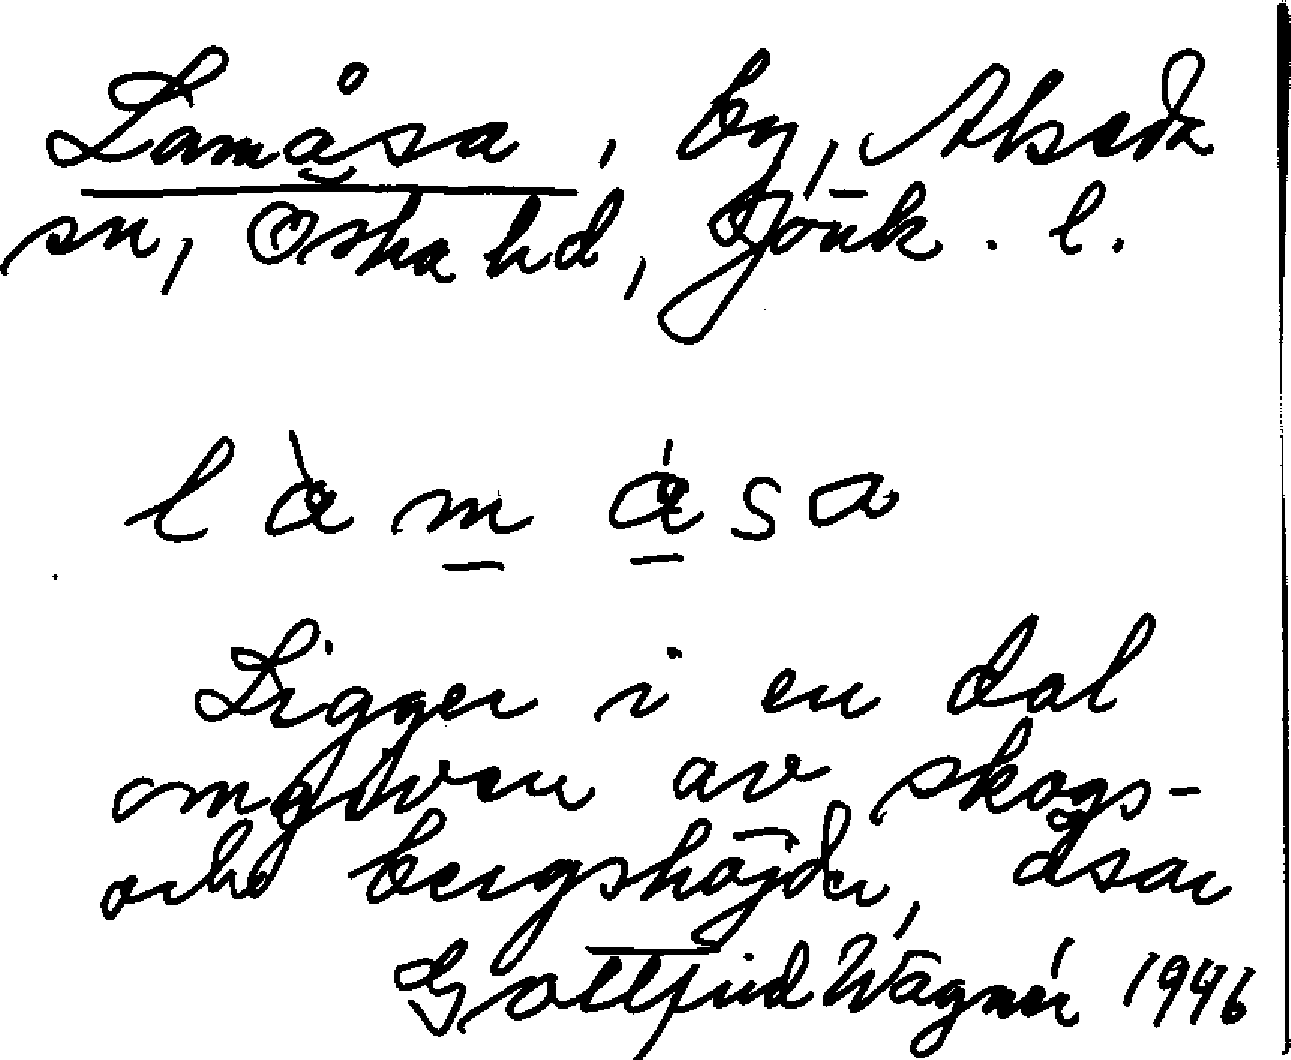 Lamåsa, by, Almesåkra
sn, Östra hd, Jönk. l.
làm ása
Ligger i en dal
omgiven av skogs-
och bergshöjder, åsar
Gottfrid Wagnér 1946